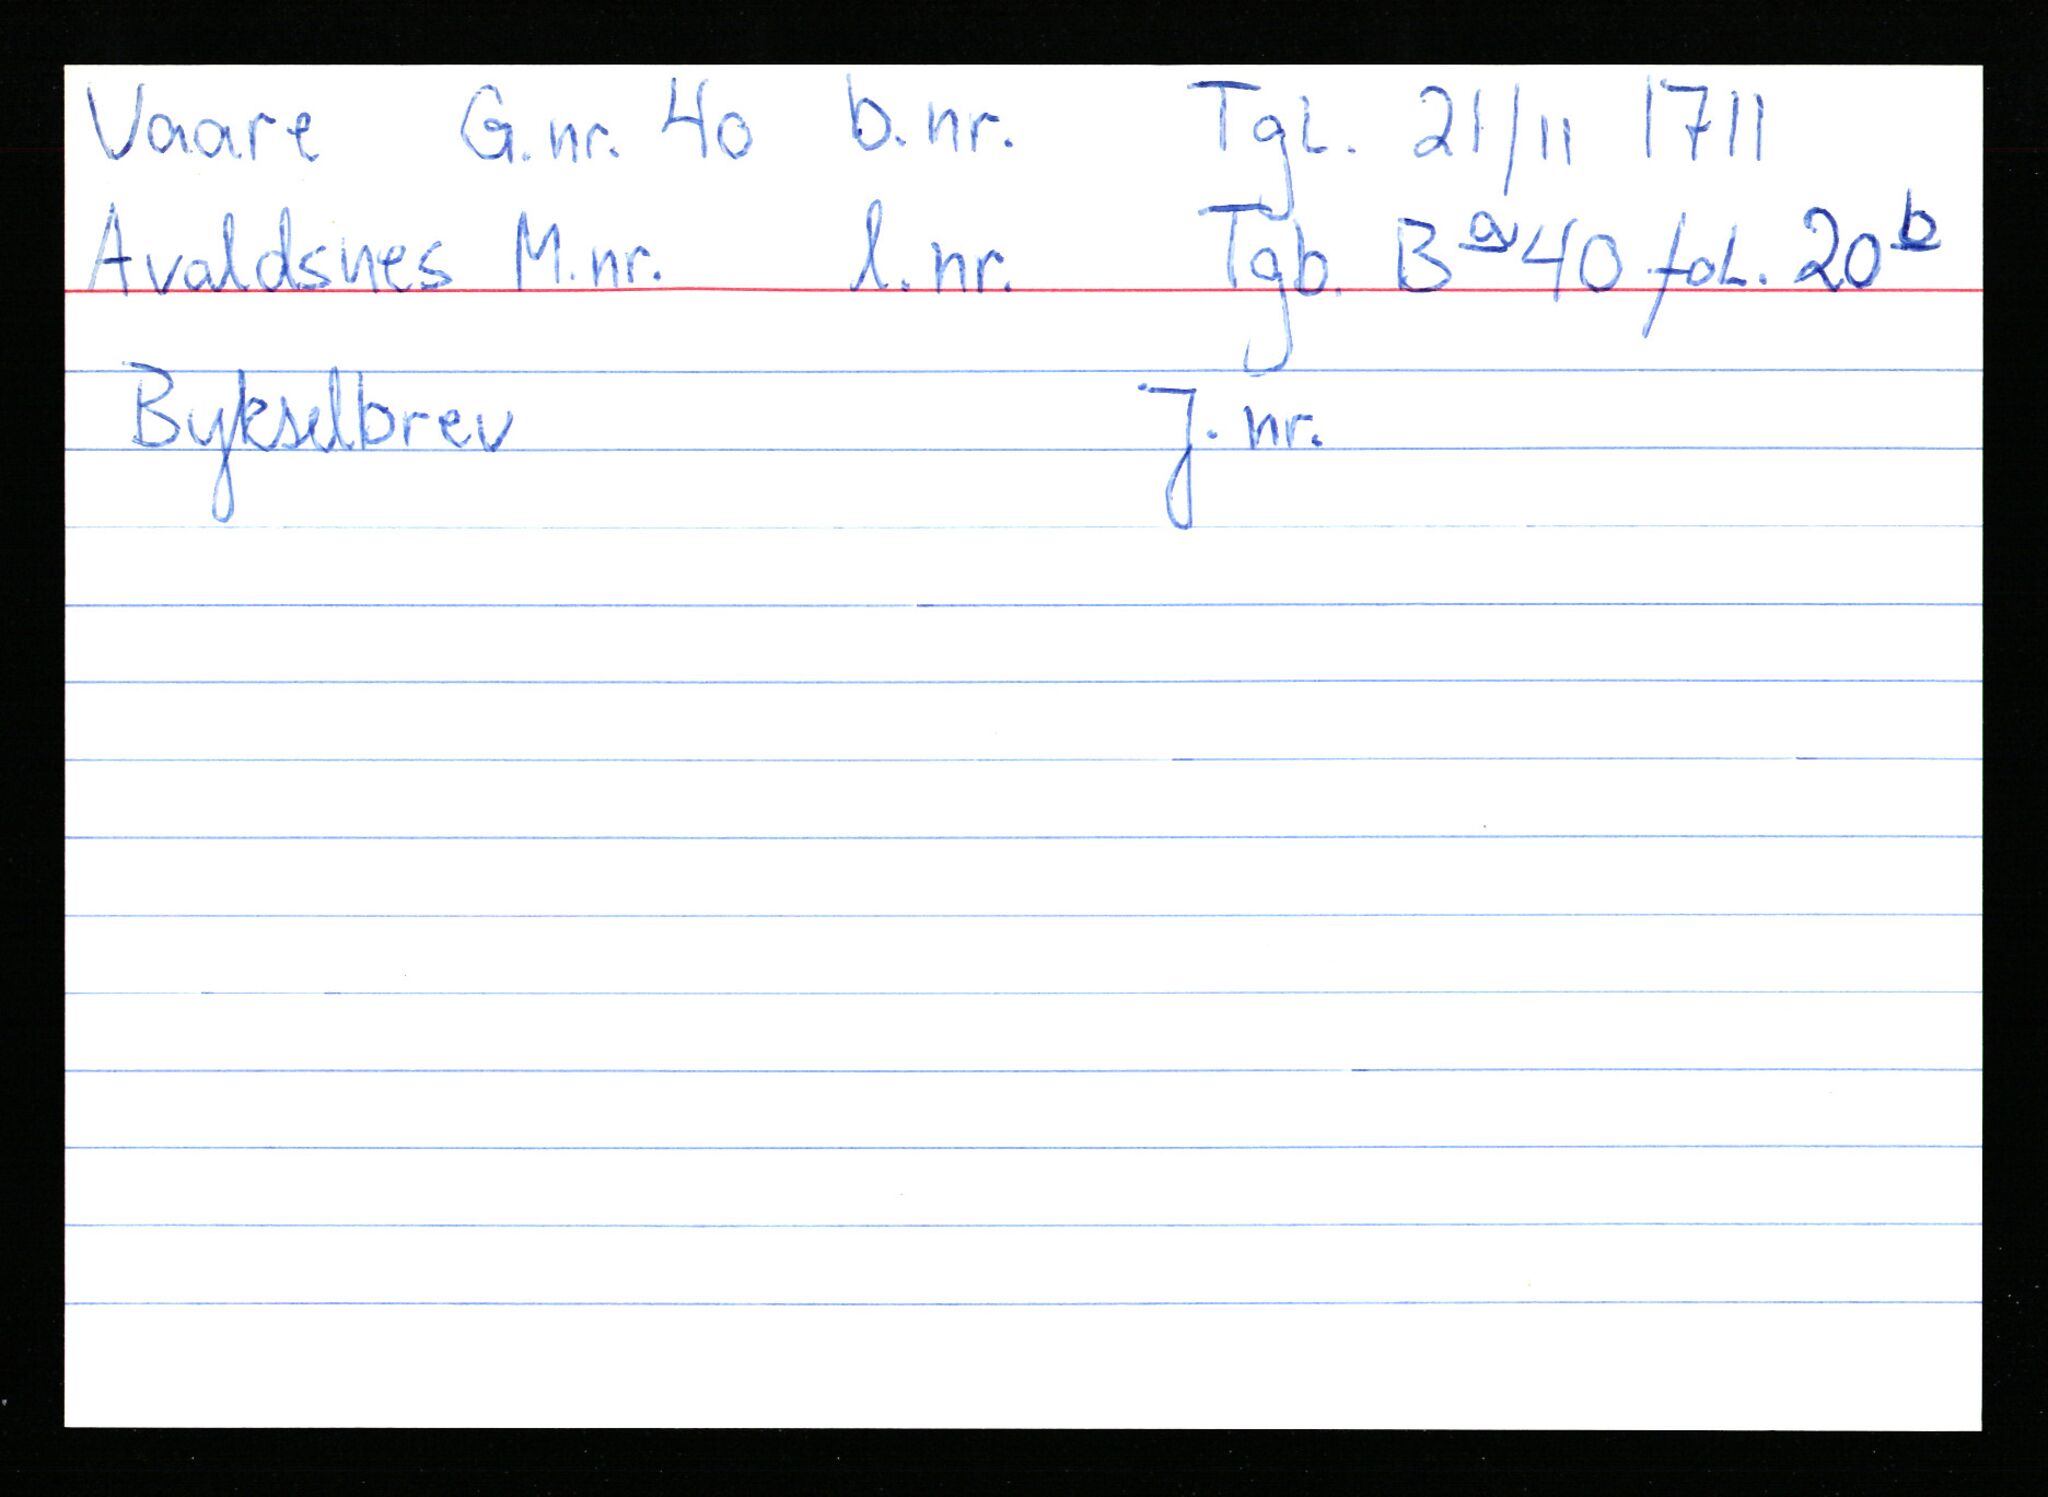 Vaare G.nr. 40 b.nr. TgL. 21/11 1711
Avaldsnes M.nr. l.nr. Tgb. B a 40 foL. 20 b
Bykselbrev J.nr.